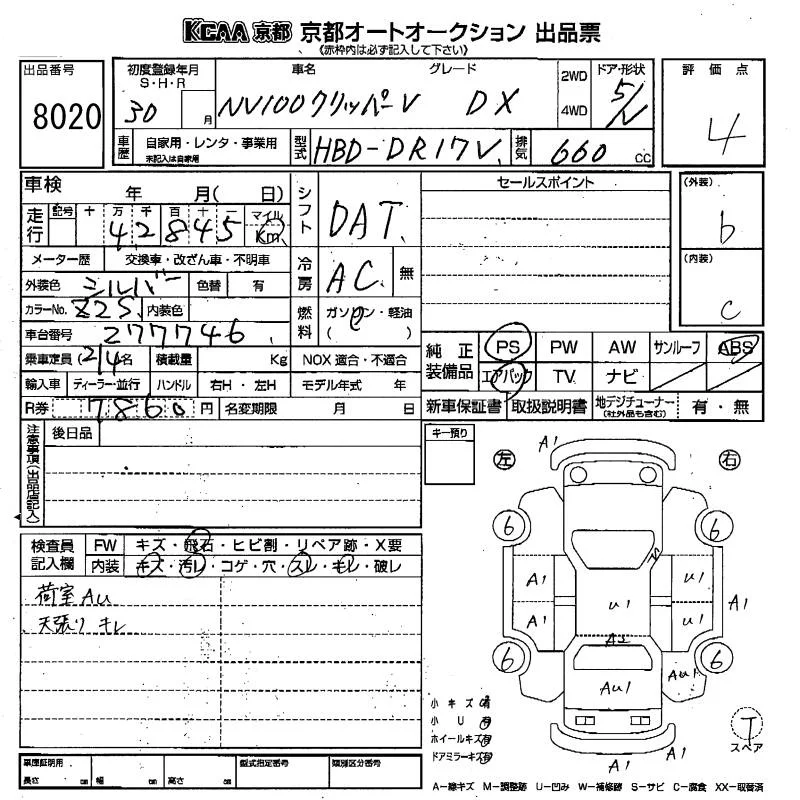 KCAA 京都 京都オートオークション 出品票
《赤枠内は必ず記入して下さい》
出品番号
8020
初度登録年月
S・H・R
30 月
車名
NV100クリッパーV
グレード
DX
2WD
4WD
ドア・形状
5/V
評価点
4
車歴
自家用・レンタ・事業用
未記入は自家用
型式
HBD-DR17V
排気
660 cc
車検
年 月( 日)
シフト
DAT
セールスポイント
(外装)
b
走行
記号 十 万 千 百 十 一 マイル
42845 Km
メーター歴 交換車・改ざん車・不明車
冷房
AC 無
(内装)
C
外装色 シルバー 色替 有
カラーNo. Z2S 内装色
燃料
ガソリン・軽油
( )
車台番号 277746
純正装備品
PS PW AW サンルーフ ABS
エアバック TV ナビ
乗車定員 (2/4名 積載量 Kg NOX 適合・不適合
輸入車 ディーラー・並行 ハンドル 右H・左H モデル年式 年
R券 7860 円 名変期限 月 日
新車保証書 取扱説明書 地デジチューナー 有・無
(社外品も含む)
注意事項(出品店記入)
後日品
キー預り
左
右
検査員記入欄
FW キズ・飛石・ヒビ割・リペア跡・X要
内装 キズ・汚レ・コゲ・穴・スレ・キレ・破レ
荷室 AU
天張り キレ
A1
6
6
A1
U1
A1
U1
A1
U1
A2
6
6
AU1
AU1
A1
A1
小キズ 有
小U
ホイールキズ
ドアミラーキズ
T
スペア
車庫証明用
長さ cm 幅 cm 高さ cm
型式指定番号
類別区分番号
A－線キズ M－調整跡 U－凹み W－補修跡 S－サビ C－腐食 XX－取替済